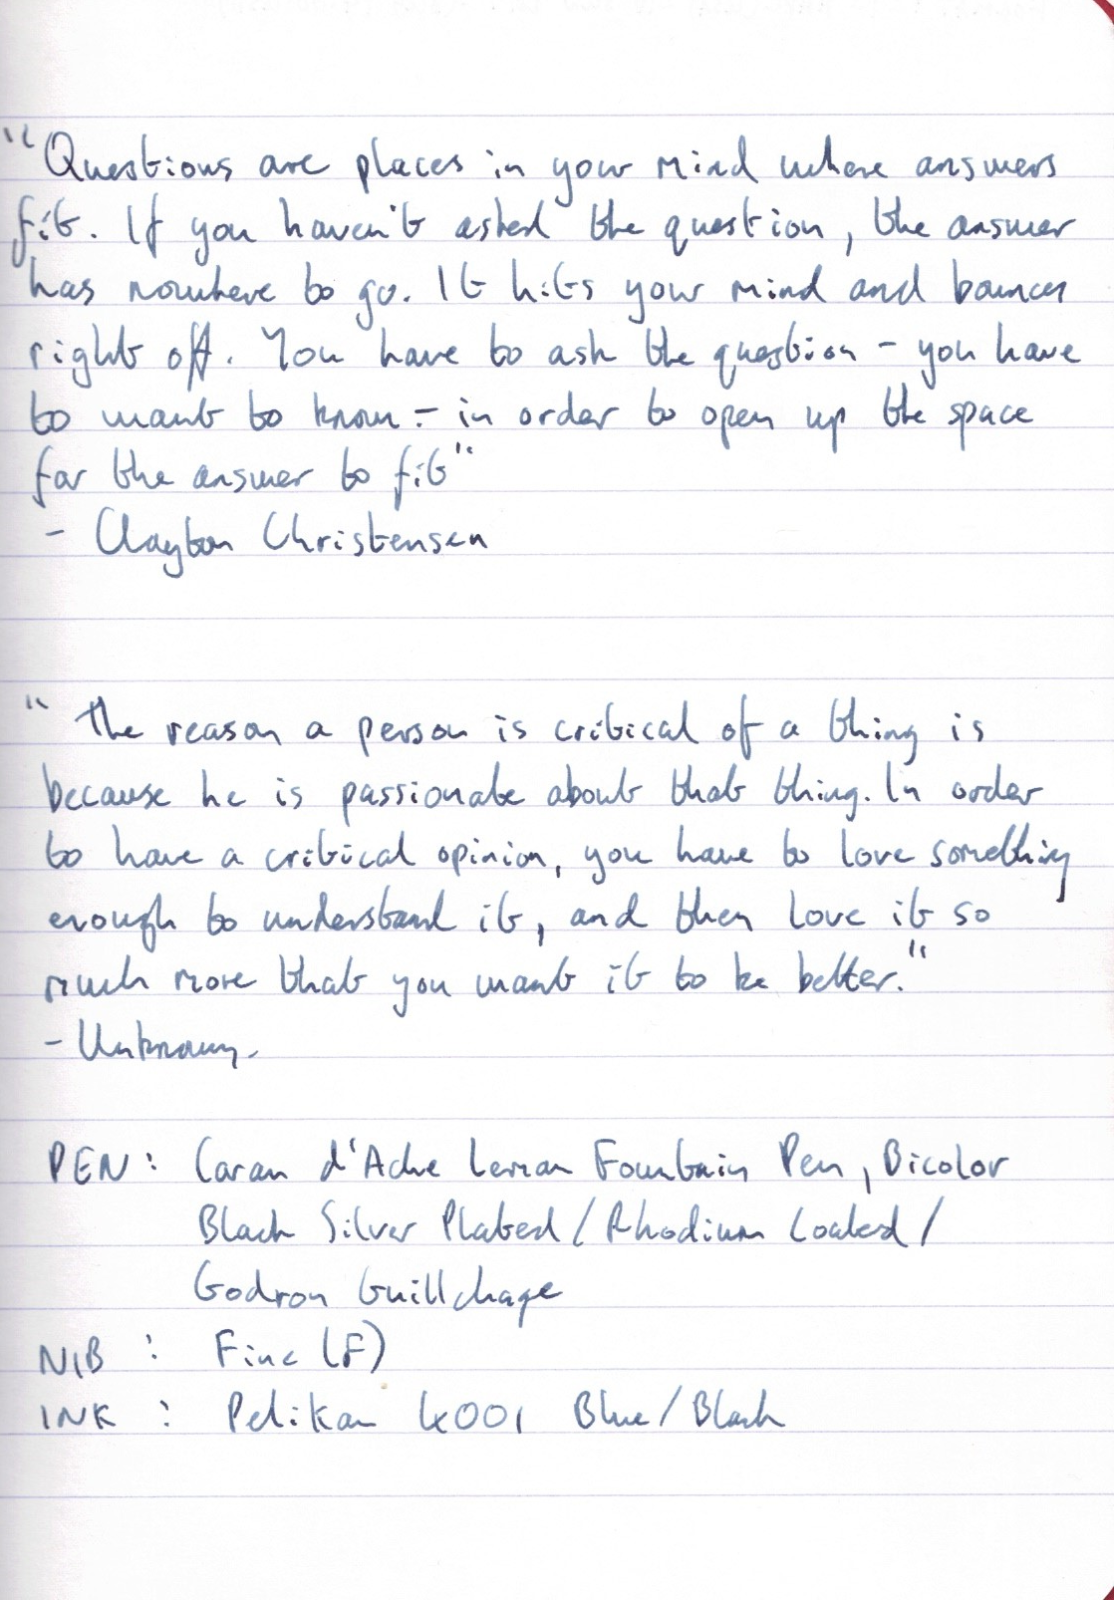 "Questions are places in your mind where answers
fit. If you haven't asked the question, the answer
has nowhere to go. It hits your mind and bounces
right off. You have to ask the question - you have
to want to know - in order to open up the space
for the answer to fit"
- Clayton Christensen
"The reason a person is critical of a thing is
because he is passionate about that thing. In order
to have a critical opinion, you have to love something
enough to understand it, and then love it so
much more that you want it to be better."
- Unknown.
PEN: Caran d'Ache Leman Fountain Pen, Bicolor
Black Silver Plated / Rhodium Coated /
Godron Guillchage
NIB : Fine (F)
INK : Pelikan 4001 Blue/Black